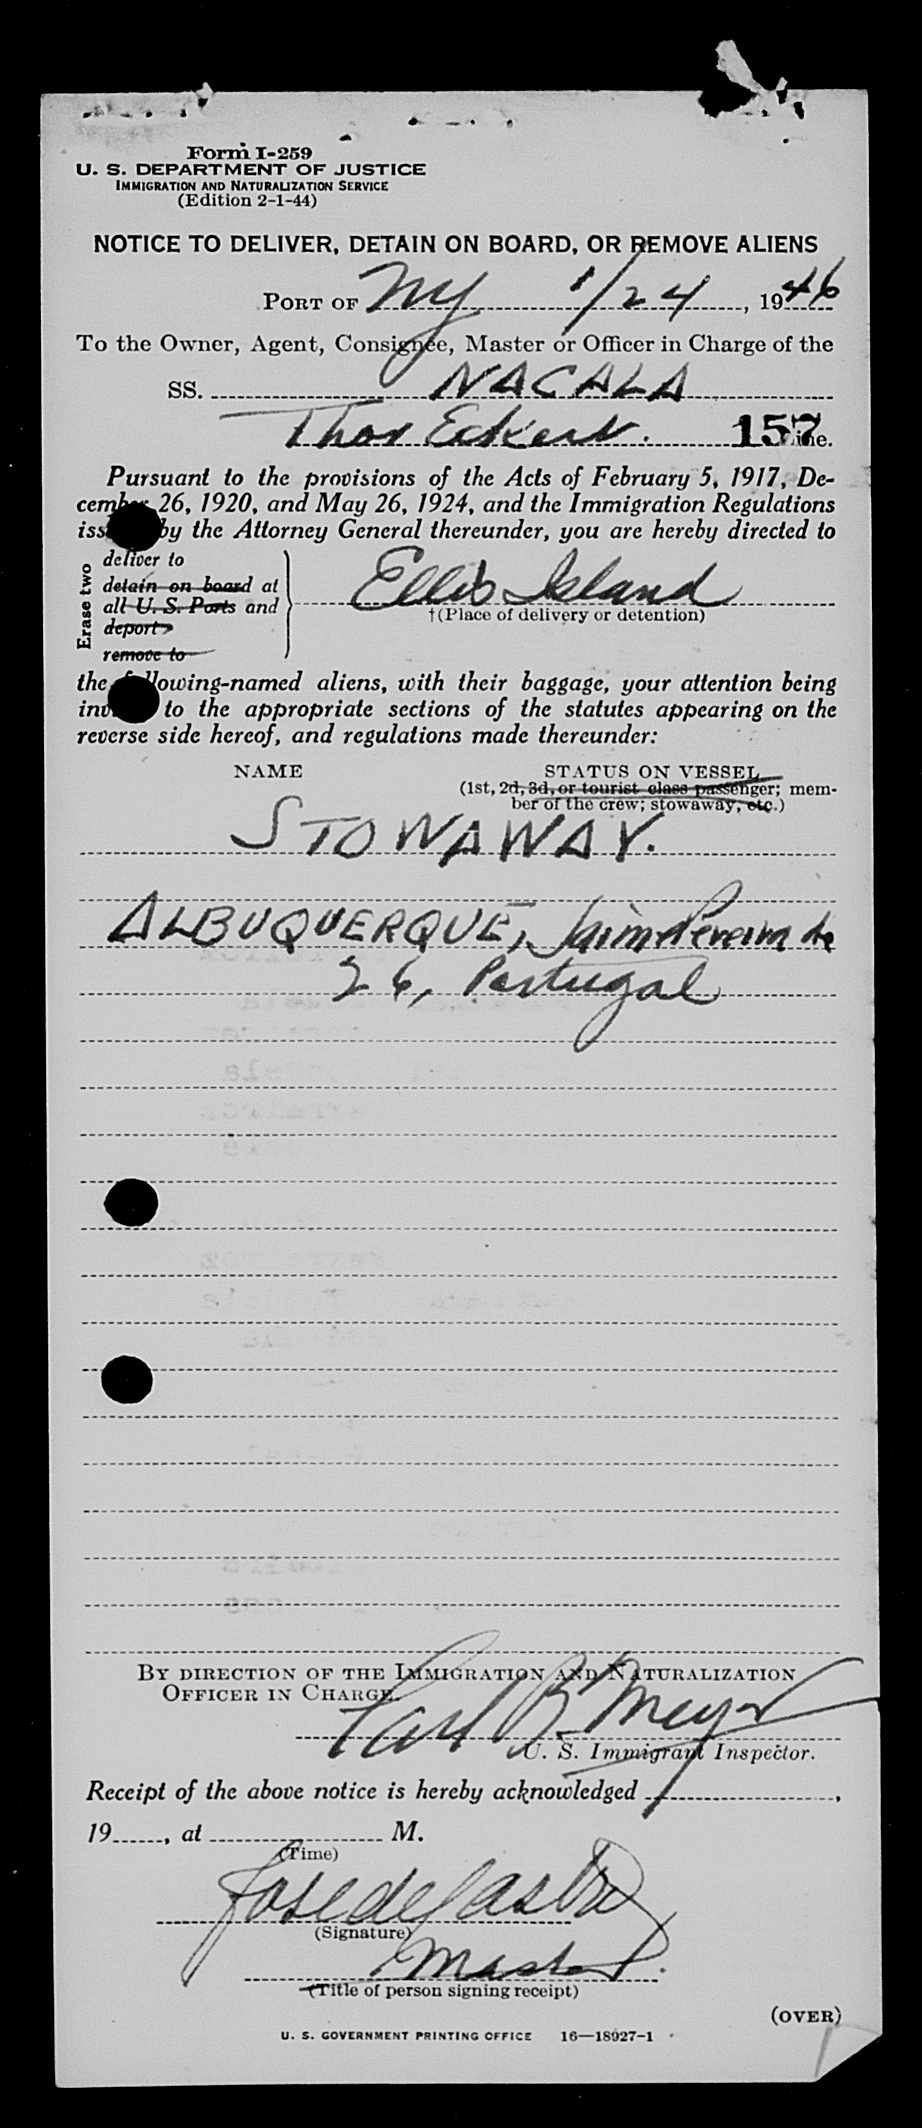 Form I-259
U. S. DEPARTMENT OF JUSTICE
IMMIGRATION AND NATURALIZATION SERVICE
(Edition 2-1-44)
NOTICE TO DELIVER, DETAIN ON BOARD, OR REMOVE ALIENS
PORT OF NY 1/24, 1946
To the Owner, Agent, Consignee, Master or Officer in Charge of the
SS. NACALA
Thor Eckert. 157 Line.
Pursuant to the provisions of the Acts of February 5, 1917, De-
cember 26, 1920, and May 26, 1924, and the Immigration Regulations
iss by the Attorney General thereunder, you are hereby directed to
Erase two
deliver to
detain on board at
all U. S. Ports and
deport
remove to
Ellis Island
†(Place of delivery or detention)
the following-named aliens, with their baggage, your attention being
inv to the appropriate sections of the statutes appearing on the
reverse side hereof, and regulations made thereunder:
NAME STATUS ON VESSEL
(1st, 2d, 3d, or tourist class passenger; mem-
ber of the crew; stowaway, etc.)
STOWAWAY.
ALBUQUERQUE, Jaime Pereira de
26, Portugal
BY DIRECTION OF THE IMMIGRATION AND NATURALIZATION
OFFICER IN CHARGE.
Carl B. Meyer
U. S. Immigrant Inspector.
Receipt of the above notice is hereby acknowledged ,
19 , at M.
(Time)
Jose de Castro
(Signature)
Master.
(Title of person signing receipt)
(OVER)
U. S. GOVERNMENT PRINTING OFFICE 16—18927-1